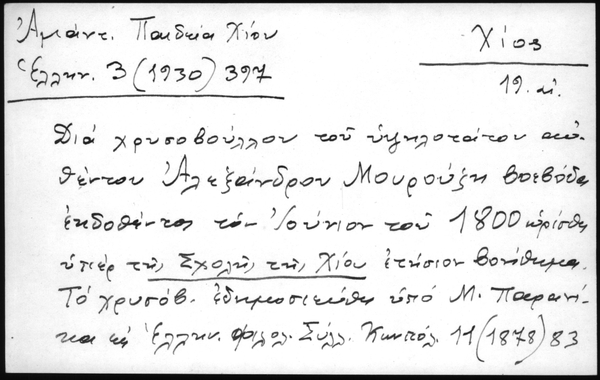 Ἀμάντ. Παιδεία Χίου
Χίος
Ἑλλην. 3 (1930) 397
19. αἰ.
Διά χρυσοβούλλου τοῦ ὑψηλοτάτου αὐ-
θέντου Ἀλεξάνδρου Μουρούζη βοεβόδα
ἐκδοθέντος τόν Ἰούνιον τοῦ 1800 ὡρίσθη
ὑπέρ τῆς Σχολῆς τῆς Χίου ἐτήσιον βοήθημα.
Τό χρυσόβ. ἐδημοσιεύθη ὑπό Μ. Παρανί-
κα ἐν Ἑλλην. Φιλολ. Σύλλ. Κωνπόλ. 11 (1878) 83